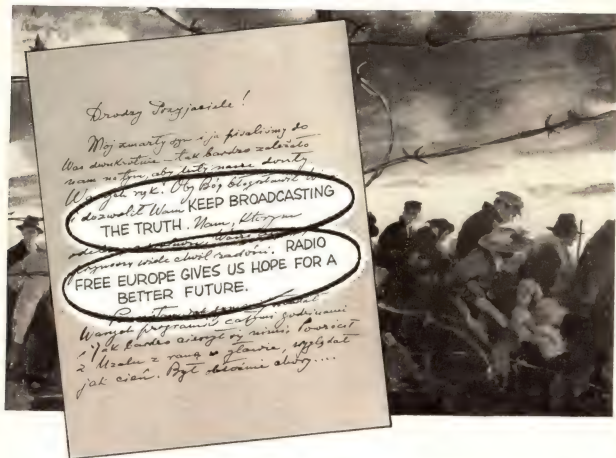 Drodzy Przyjaciele!
Mój zmarły syn i ja pisaliśmy do
Was dwukrotnie – tak bardzo zależało
nam na tym, aby listy nasze doszły
rąk! Oby Bóg błogosławił
i dozwolił Wam KEEP BROADCASTING
THE TRUTH. Nam, którym
wiele chwil radości. RADIO
FREE EUROPE GIVES US HOPE FOR A
BETTER FUTURE.
Waszych programów całymi godzinami
! Jak bardzo cieszył się nimi! Powrócił
z Uralu z raną w głowie, wyglądał
jak cień. Był obłożnie chory....